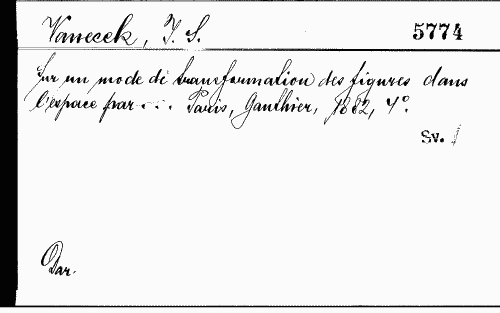 Vanecek, J. S. 5774
Sur un mode de transformation des figures dans
l'espace par . . . Paris, Gauthier, 1882, 4°.
Sv. 1
Dar.